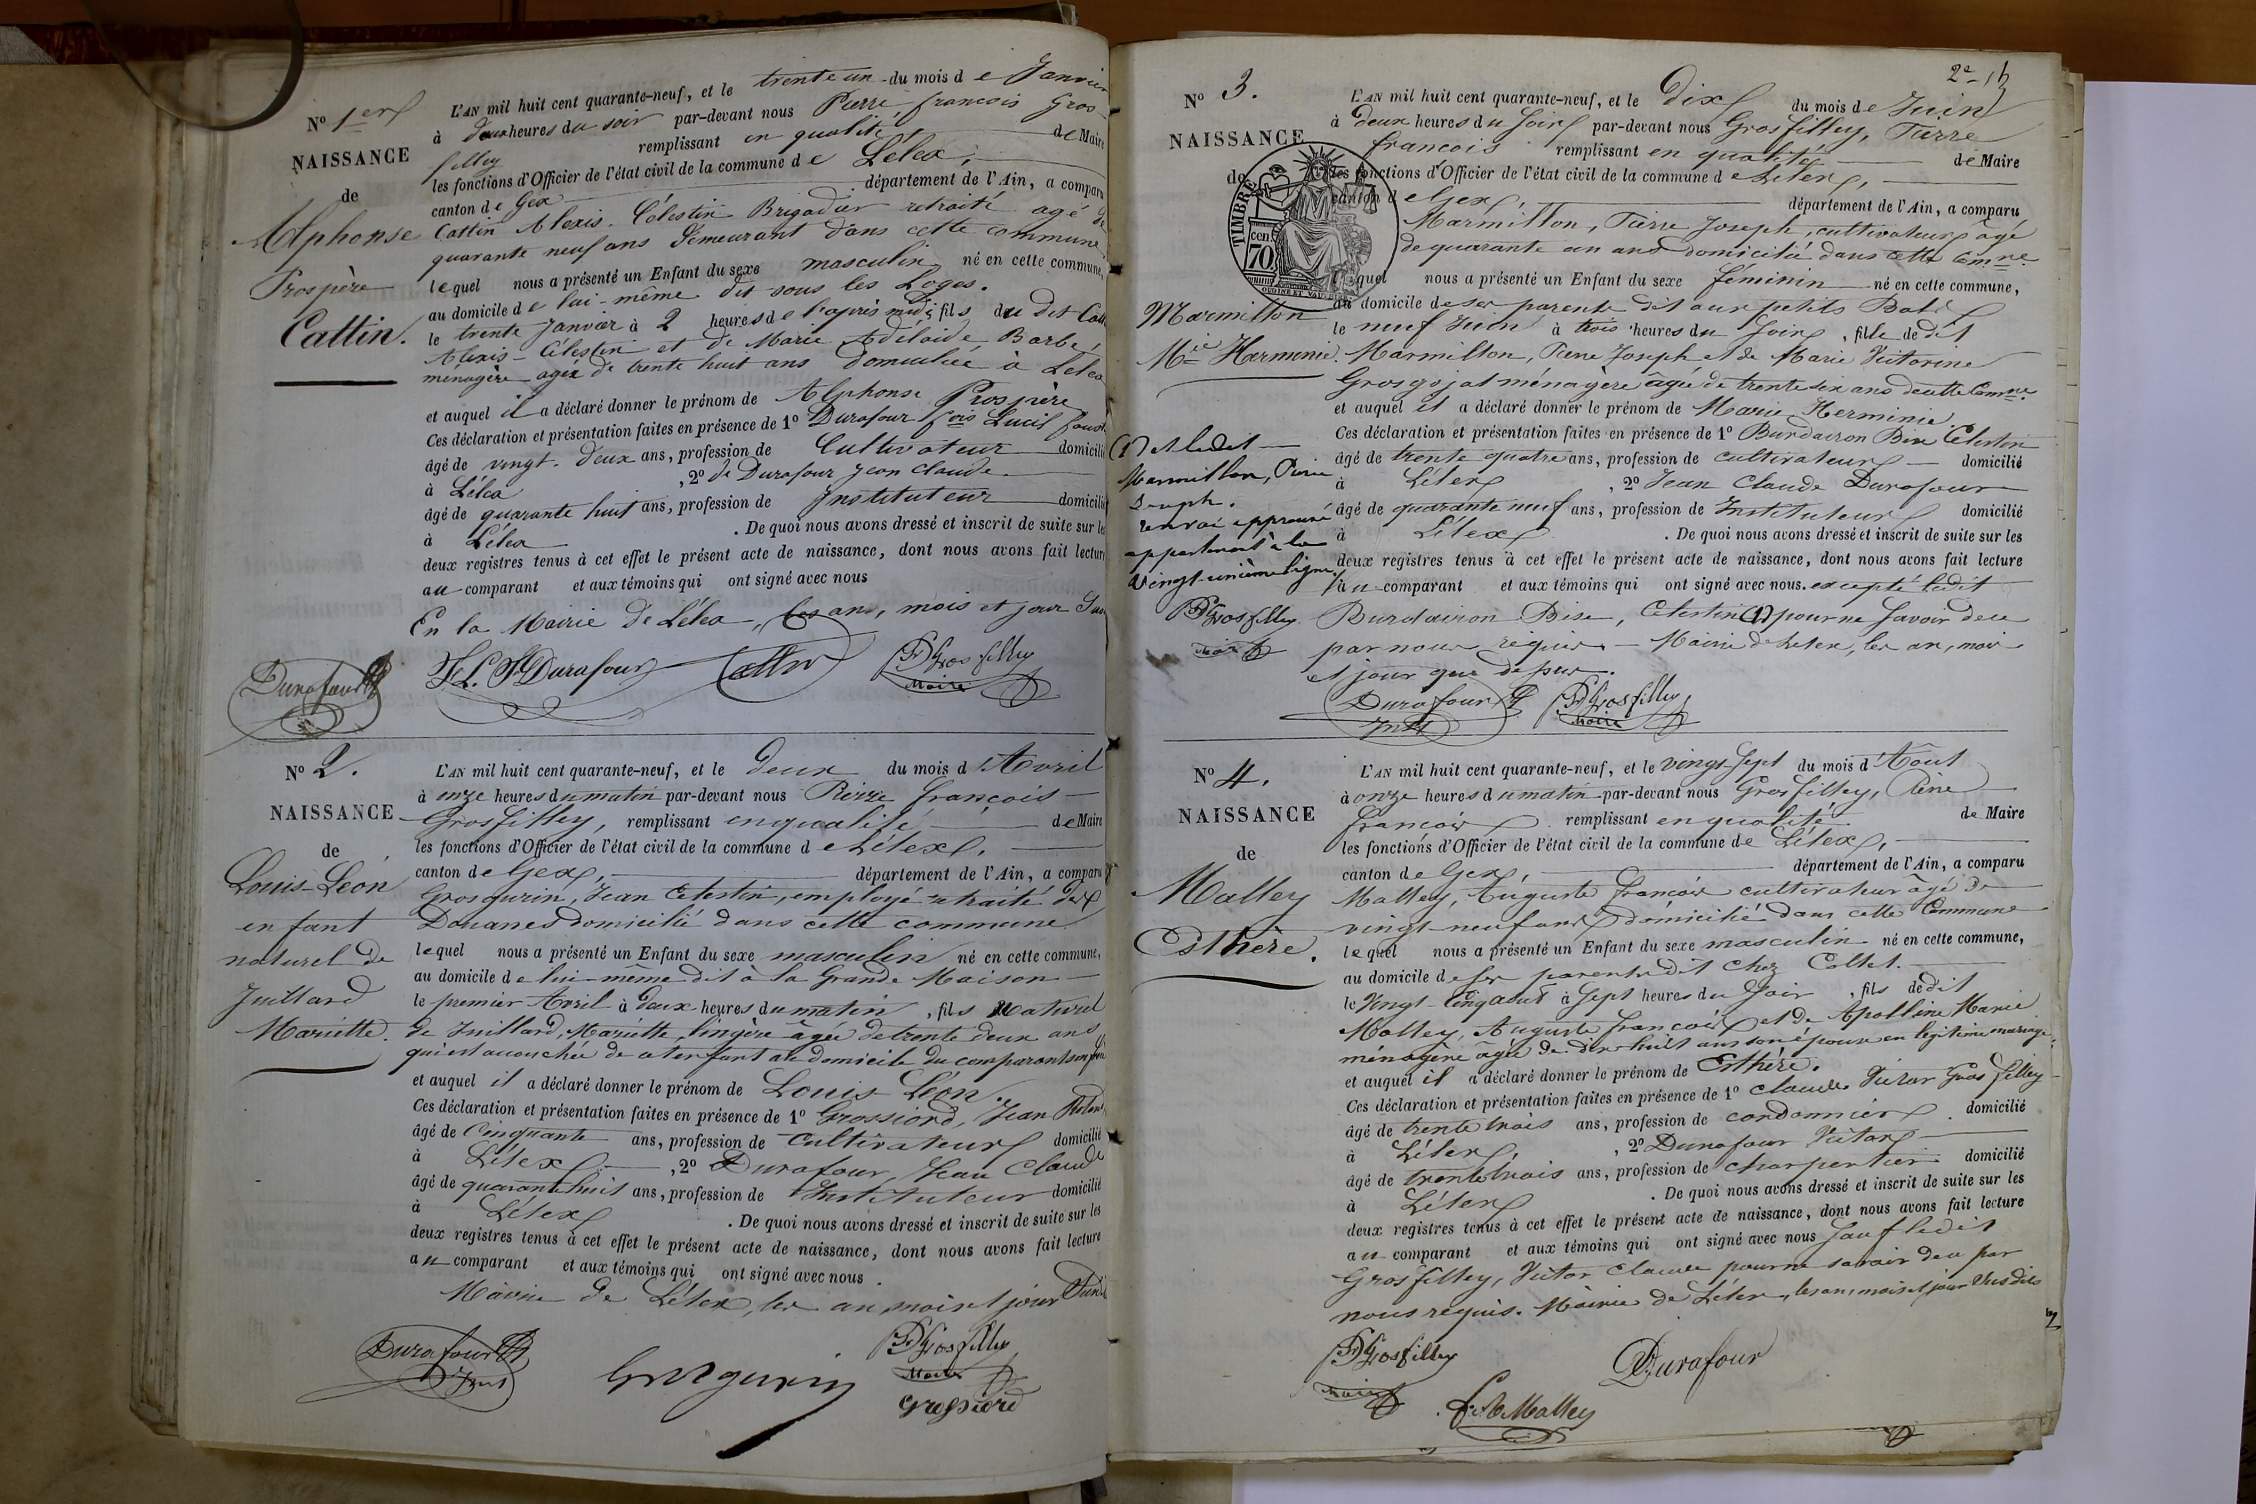 No 1er
NAISSANCE
de
Alphonse
Prospère
Cattin.
L'AN mil huit cent quarante-neuf, et le trente un du mois de Janvier
à deux heures du soir par-devant nous Pierre françois Gros
filley remplissant en qualité de Maire
les fonctions d'Officier de l'état civil de la commune de Lélex,
canton de Gex département de l'Ain, a comparu
Cattin Alexis Célestin Brigadier retraité agé de
quarante neuf ans demeurant dans cette commune
lequel nous a présenté un Enfant du sexe masculin né en cette commune,
au domicile de lui-même dit sous les Loges.
le trente Janvier à 2 heures de l'après midi fils du dit
Alexis-Célestin et de Marie Adélaïde Barbe,
ménagère agée de trente huit ans domiciliée à Lélex
et auquel il a déclaré donner le prénom de Alphonse Prospère
Ces déclaration et présentation faites en présence de 1o Durafour fois Lucil
âgé de vingt-deux ans, profession de Cultivateur domicilié
à Lélex , 2o de Durafour Jean Claude
âgé de quarante huit ans, profession de Instituteur domicilié
à Lélex . De quoi nous avons dressé et inscrit de suite sur les
deux registres tenus à cet effet le présent acte de naissance, dont nous avons fait lecture
au comparant et aux témoins qui ont signé avec nous
En la Mairie de Lélex, les ans, mois et jour
Durafour F L Durafour Cattin Grosfilley
Maire
No 2.
NAISSANCE
de
Louis Léon
enfant
naturel de
Juillard
Mariette.
L'AN mil huit cent quarante-neuf, et le deux du mois d'Avril
à onze heures du matin par-devant nous Pierre françois
Grosfilley, remplissant en qualité de Maire
les fonctions d'Officier de l'état civil de la commune de Lélex,
canton de Gex, département de l'Ain, a comparu
Grosgurin, Jean Célestin, employé retraité des
Douanes domicilié dans cette commune
lequel nous a présenté un Enfant du sexe masculin né en cette commune,
au domicile de lui-même dit à la Grande Maison
le premier Avril à deux heures du matin, fils naturel
de Juillard, Mariette, lingère âgée de trente deux ans
qui est accouchée de cet enfant au domicile du comparant
et auquel il a déclaré donner le prénom de Louis Léon.
Ces déclaration et présentation faites en présence de 1o Grossiord, Jean
âgé de Cinquante ans, profession de Cultivateur domicilié
à Lélex , 2o Durafour, Jean Claude
âgé de quarante huit ans, profession de Instituteur domicilié
à Lélex . De quoi nous avons dressé et inscrit de suite sur les
deux registres tenus à cet effet le présent acte de naissance, dont nous avons fait lecture
au comparant et aux témoins qui ont signé avec nous.
Mairie de Lélex, les an, mois et jour
Durafour Grosgurin Grosfilley
Inst Maire
Grossiord
2e
No 3.
NAISSANCE
de
TIMBRE
cen.
70
Marmillon
Mie Herminie.
L'AN mil huit cent quarante-neuf, et le Dix du mois de Juin
à deux heures du soir par-devant nous Grosfilley, Pierre
françois remplissant en qualité de Maire
les fonctions d'Officier de l'état civil de la commune de Lélex,
canton de Gex, département de l'Ain, a comparu
Marmillon, Pierre Joseph, cultivateur âgé
de quarante un ans domicilié dans cette Comne
lequel nous a présenté un Enfant du sexe féminin né en cette commune,
au domicile de ses parents dit aux petits
le neuf Juin à trois heures du soir, fille de dit
Marmillon, Pierre Joseph et de Marie Victorine
Grosgojat ménagère âgée de trente six ans de cette Comne.
et auquel il a déclaré donner le prénom de Marie Herminie.
Ces déclaration et présentation faites en présence de 1o Burdairon Bise Célestin
âgé de trente quatre ans, profession de cultivateur domicilié
à Lélex , 2o Jean Claude Durafour
âgé de quarante neuf ans, profession de Instituteur domicilié
à Lélex . De quoi nous avons dressé et inscrit de suite sur les
deux registres tenus à cet effet le présent acte de naissance, dont nous avons fait lecture
au comparant et aux témoins qui ont signé avec nous. excepté ledit
Burdairon Bise, Célestin (1) pour ne savoir de ce
par nous requis. Mairie de Lélex, les an, mois
et jour que dessus.
(1) et ledit
Marmillon, Pierre
Joseph.
renvoi approuvé
appartenant à la
vingt-unième ligne.
Grosfilley
Maire
Durafour Grosfilley
Inst Maire
No 4.
NAISSANCE
de
Malley
Esthère.
L'AN mil huit cent quarante-neuf, et le vingt-sept du mois d'Août
à onze heures du matin par-devant nous Grosfilley, Pierre
françois remplissant en qualité de Maire
les fonctions d'Officier de l'état civil de la commune de Lélex,
canton de Gex, département de l'Ain, a comparu
Malley, Auguste françois cultivateur âgé de
vingt-neuf ans domicilié dans cette Commune
lequel nous a présenté un Enfant du sexe masculin né en cette commune,
au domicile de ses parents dit chez Collet.
le vingt-cinq août à sept heures du soir, fils de dit
Malley, Auguste françois et de Apolline Marie
ménagère âgée de dix-huit ans son épouse en légitime mariage.
et auquel il a déclaré donner le prénom de Esthère.
Ces déclaration et présentation faites en présence de 1o Claude Victor Gros filley
âgé de trente trois ans, profession de cordonnier domicilié
à Lélex, , 2o Durafour Victor
âgé de trente trois ans, profession de charpentier domicilié
à Lélex . De quoi nous avons dressé et inscrit de suite sur les
deux registres tenus à cet effet le présent acte de naissance, dont nous avons fait lecture
au comparant et aux témoins qui ont signé avec nous sauf ledit
Grosfilley, Victor Claude pour ne savoir de ce par
nous requis. Mairie de Lélex, les an, mois et jour susdits
Grosfilley Durafour
Maire
Malley